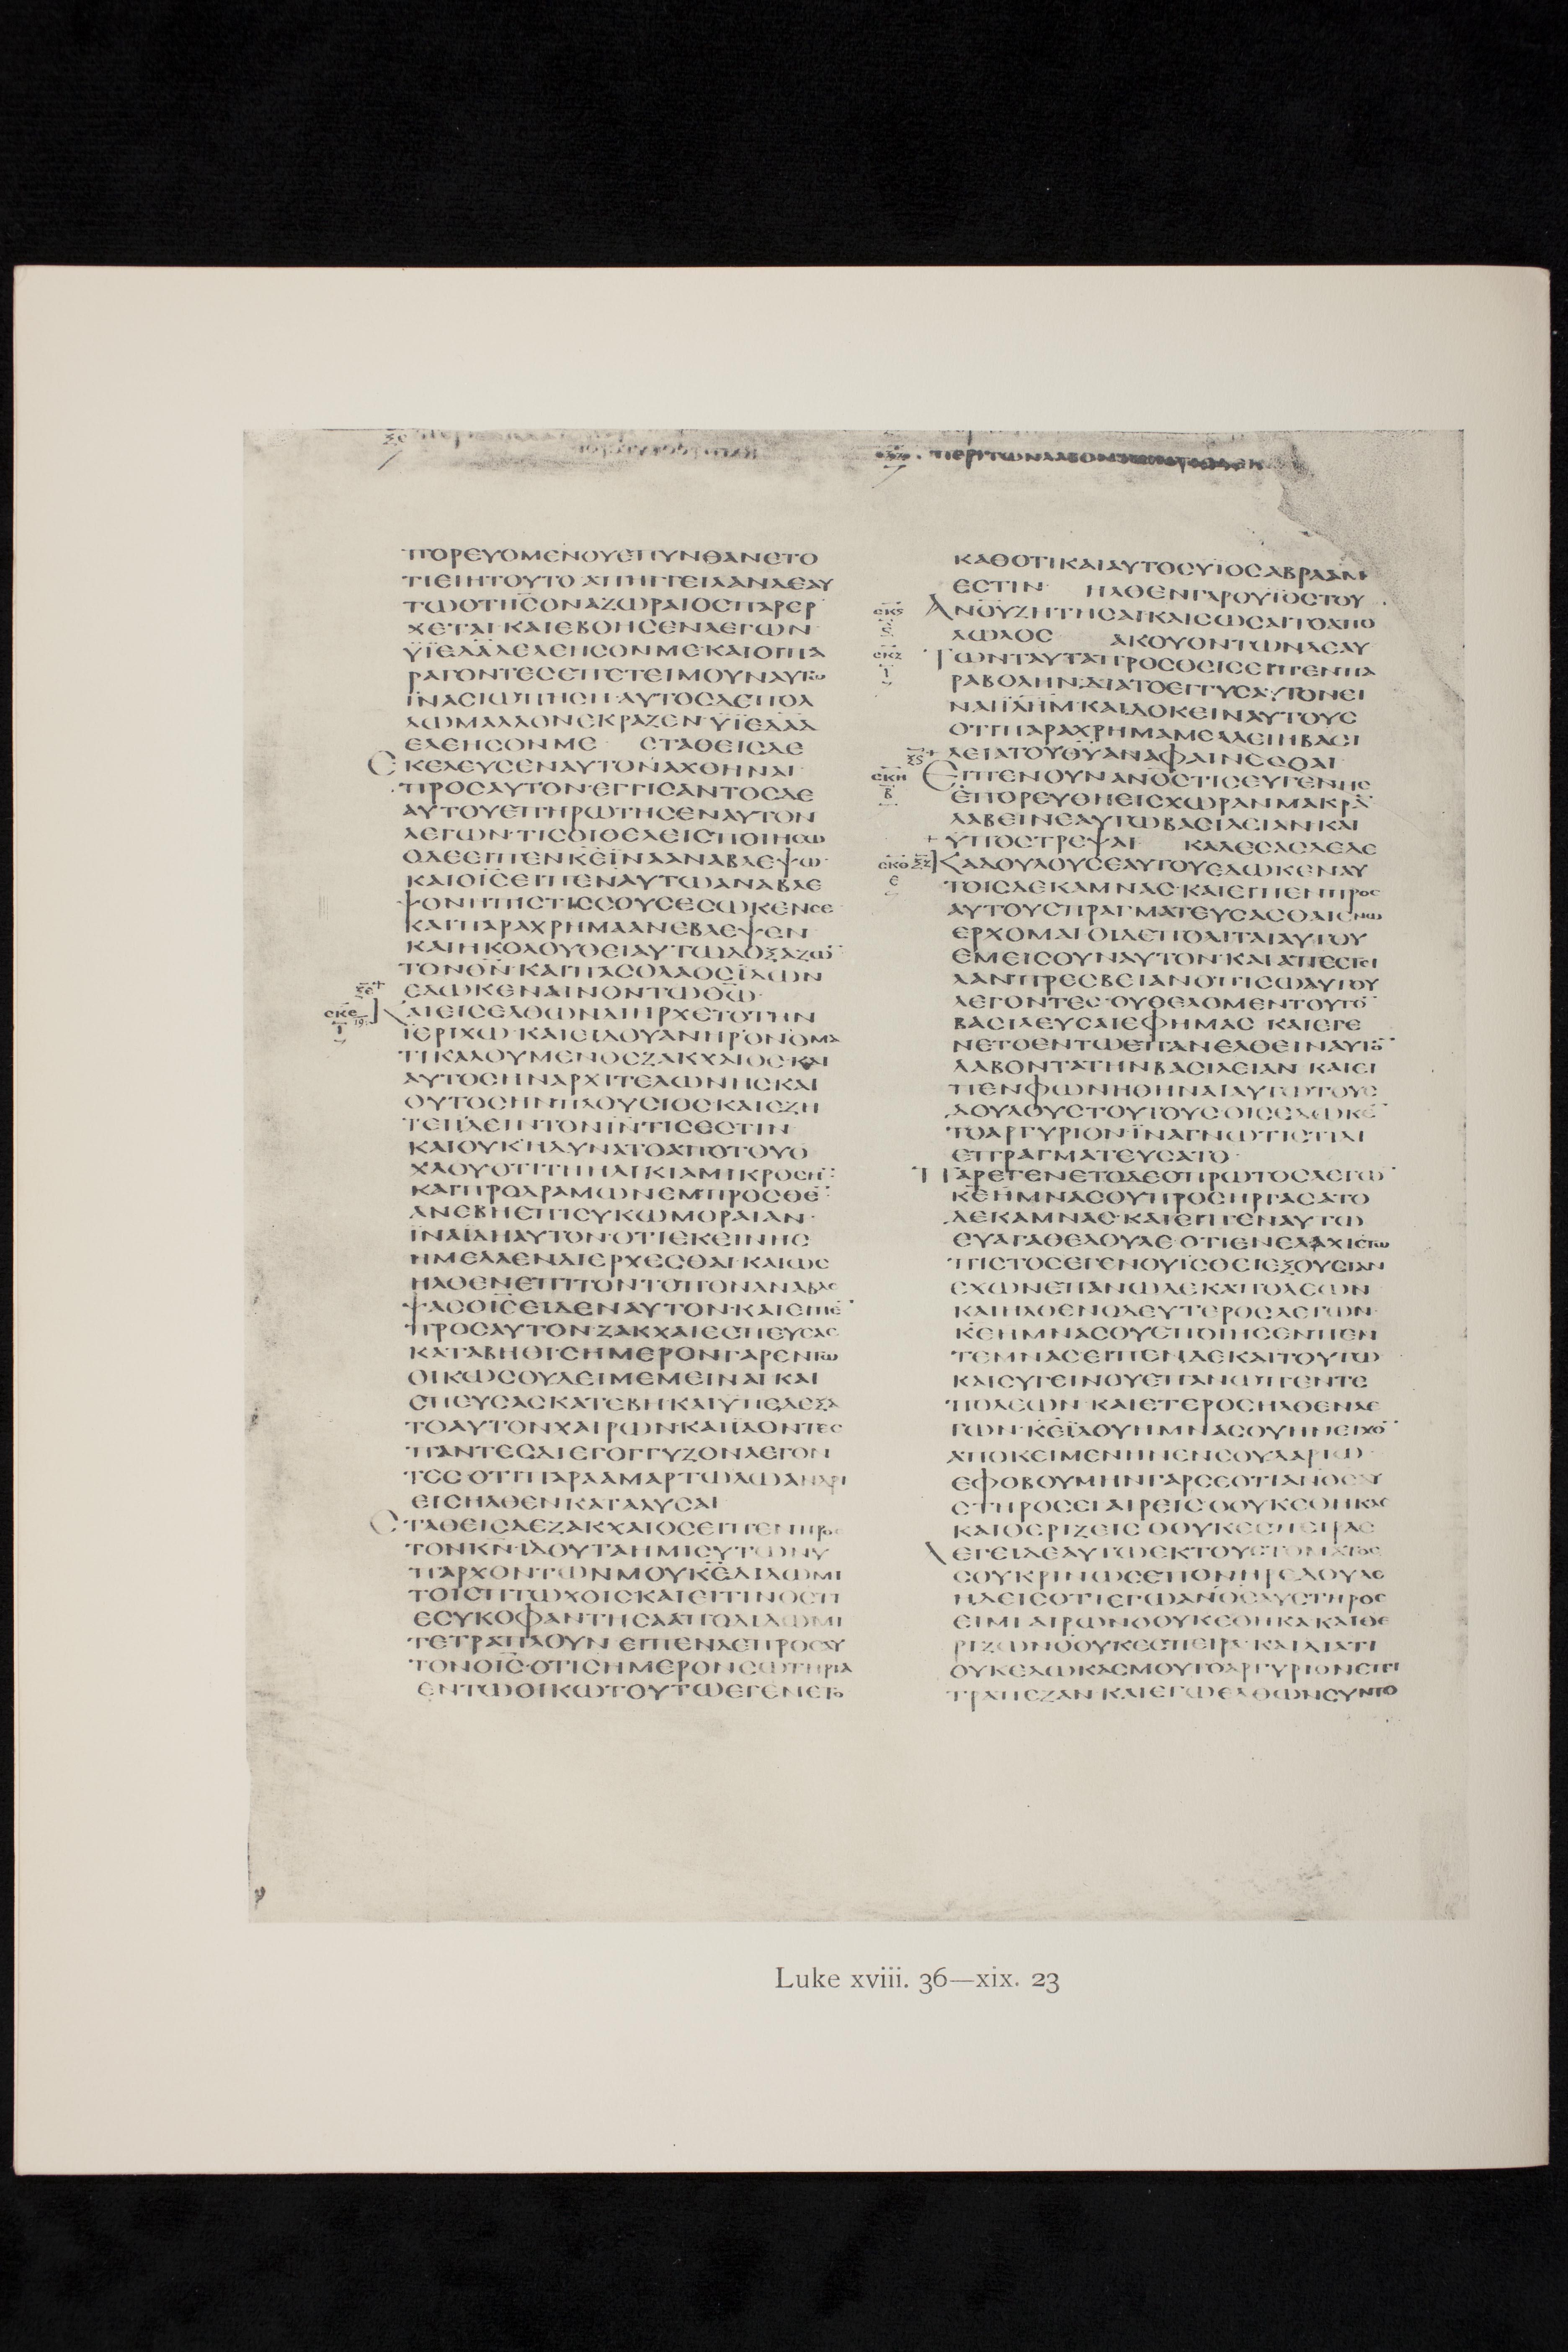 ΠΕΡΙΤΩΝΛΑΒΟΝΤΩΝ
ΠΟΡΕΥΟΜΕΝΟΥΕΠΥΝΘΑΝΕΤΟ
ΤΙΕΙΗΤΟΥΤΟ ΑΠΗΓΓΕΙΛΑΝΔΕΑΥ
ΤΩΟΤΙΙ̅Ϲ̅ΟΝΑΖΩΡΑΙΟϹΠΑΡΕΡ
ΧΕΤΑΙ·ΚΑΙΕΒΟΗϹΕΝΛΕΓΩΝ
ΫΪΕΔ̅Α̅Δ̅ΕΛΕΗϹΟΝΜΕ·ΚΑΙΟΙΠΑ
ΡΑΓΟΝΤΕϹΕΠΕΤΕΙΜΟΥΝΑΥΤΩ
ΪΝΑϹΙΩΠΗϹΗ·ΑΥΤΟϹΔΕΠΟΛ
ΛΩΜΑΛΛΟΝΕΚΡΑΖΕΝ·ΫΪΕΔ̅Α̅Δ̅
ΕΛΕΗϹΟΝΜΕ ϹΤΑΘΕΙϹΔΕ
ΕΚΕΛΕΥϹΕΝΑΥΤΟΝΑΧΘΗΝΑΙ
ΠΡΟϹΑΥΤΟΝ·ΕΓΓΙϹΑΝΤΟϹΔΕ
ΑΥΤΟΥΕΠΗΡΩΤΗϹΕΝΑΥΤΟΝ
ΛΕΓΩΝ·ΤΙϹΟΙΘΕΛΕΙϹΠΟΙΗϹΩ
ΟΔΕΕΙΠΕΝΚ̅Ε̅ΪΝΑΑΝΑΒΛΕΨΩ·
ΚΑΙΟΙ̅Ϲ̅ΕΙΠΕΝΑΥΤΩΑΝΑΒΛΕ
ΨΟΝΗΠΙϹΤΙϹϹΟΥϹΕϹΩΚΕΝϹΕ
ΚΑΙΠΑΡΑΧΡΗΜΑΑΝΕΒΛΕΨΕΝ
ΚΑΙΗΚΟΛΟΥΘΕΙΑΥΤΩΔΟΞΑΖΩ̅
ΤΟΝΘ̅Ν̅·ΚΑΙΠΑϹΟΛΑΟϹΪΔΩΝ
ΕΔΩΚΕΝΑΙΝΟΝΤΩΘ̅Ω̅·
ϹΚΕ
Ι
ΞΕ
ΚΑΙΕΙϹΕΛΘΩΝΔΙΗΡΧΕΤΟΤΗΝ
ΪΕΡΙΧΩ·ΚΑΙΕΙΔΟΥΑΝΗΡΟΝΟΜΑ
ΤΙΚΑΛΟΥΜΕΝΟϹΖΑΚΧΑΙΟϹ·ΚΑΙ
ΑΥΤΟϹΗΝΑΡΧΙΤΕΛΩΝΗϹΚΑΙ
ΟΥΤΟϹΗΝΠΛΟΥϹΙΟϹΚΑΙΕΖΗ
ΤΕΙΪΔΕΙΝΤΟΝΙ̅Ν̅ΤΙϹΕϹΤΙΝ·
ΚΑΙΟΥΚΗΔΥΝΑΤΟΑΠΟΤΟΥΟ
ΧΛΟΥΟΤΙΤΗΗΛΙΚΙΑΜΙΚΡΟϹΗ̅
ΚΑΙΠΡΟΔΡΑΜΩΝΕΜΠΡΟϹΘΕ̅
ΑΝΕΒΗΕΠΙϹΥΚΩΜΟΡΑΙΑΝ·
ΪΝΑΪΔΗΑΥΤΟΝ·ΟΤΙΕΚΕΙΝΗϹ
ΗΜΕΛΛΕΝΔΙΕΡΧΕϹΘΑΙ·ΚΑΙΩϹ
ΗΛΘΕΝΕΠΙΤΟΝΤΟΠΟΝΑΝΑΒΛΕ
ΨΑϹΟΙ̅Ϲ̅ΕΙΔΕΝΑΥΤΟΝ·ΚΑΙΕΙΠΕ̅
ΠΡΟϹΑΥΤΟΝ·ΖΑΚΧΑΙΕϹΠΕΥϹΑϹ
ΚΑΤΑΒΗΘΙϹΗΜΕΡΟΝΓΑΡΕΝΤΩ
ΟΙΚΩϹΟΥΔΕΙΜΕΜΕΙΝΑΙ·ΚΑΙ
ϹΠΕΥϹΑϹΚΑΤΕΒΗ·ΚΑΙΫΠΕΔΕΞΑ
ΤΟΑΥΤΟΝΧΑΙΡΩΝ·ΚΑΙΪΔΟΝΤΕϹ
ΠΑΝΤΕϹΔΙΕΓΟΓΓΥΖΟΝΛΕΓΟΝ
ΤΕϹ·ΟΤΙΠΑΡΑΑΜΑΡΤΩΛΩΑΝΔΡΙ
ΕΙϹΗΛΘΕΝΚΑΤΑΛΥϹΑΙ
ϹΤΑΘΕΙϹΔΕΖΑΚΧΑΙΟϹΕΙΠΕΝΠΡΟϹ
ΤΟΝΚ̅Ν̅·ΙΔΟΥΤΑΗΜΙϹΥΤΩΝΥ
ΠΑΡΧΟΝΤΩΝΜΟΥΚ̅Ε̅ΔΙΔΩΜΙ
ΤΟΙϹΠΤΩΧΟΙϹΚΑΙΕΙΤΙΝΟϹΤΙ
ΕϹΥΚΟΦΑΝΤΗϹΑΑΠΟΔΙΔΩΜΙ
ΤΕΤΡΑΠΛΟΥΝ ΕΙΠΕΝΔΕΠΡΟϹΑΥ
ΤΟΝΟΙ̅Ϲ̅·ΟΤΙϹΗΜΕΡΟΝϹΩΤΗΡΙΑ
ΕΝΤΩΟΙΚΩΤΟΥΤΩΕΓΕΝΕΤΟ
ΚΑΘΟΤΙΚΑΙΑΥΤΟϹΥΪΟϹΑΒΡΑΑΜ
ΕϹΤΙΝ· ΗΛΘΕΝΓΑΡΟΥΪΟϹΤΟΥ
ϹΚϚ
Ε
ΑΝ̅Ο̅Υ̅ΖΗΤΗϹΑΙΚΑΙϹΩϹΑΙΤΟΑΠΟ
ΛΩΛΟϹ ΑΚΟΥΟΝΤΩΝΔΕΑΥ
ϹΚΖ
Ι
ΤΩΝΤΑΥΤΑΠΡΟϹΘΕΙϹΕΙΠΕΝΠΑ
ΡΑΒΟΛΗΝ·ΔΙΑΤΟΕΓΓΥϹΑΥΤΟΝΕΙ
ΝΑΙΙ̅Λ̅Η̅Μ̅·ΚΑΙΔΟΚΕΙΝΑΥΤΟΥϹ
ΟΤΙΠΑΡΑΧΡΗΜΑΜΕΛΛΕΙΗΒΑϹΙ
ΛΕΙΑΤΟΥΘ̅Υ̅ΑΝΑΦΑΙΝΕϹΘΑΙ
ΞϚ
ϹΚΗ
Β
ΕΙΠΕΝΟΥΝΑΝ̅Ο̅Ϲ̅ΤΙϹΕΥΓΕΝΗϹ
ΕΠΟΡΕΥΘΗΕΙϹΧΩΡΑΝΜΑΚΡΑ̅
ΛΑΒΕΙΝΕΑΥΤΩΒΑϹΙΛΕΙΑΝΚΑΙ
ΥΠΟϹΤΡΕΨΑΙ ΚΑΛΕϹΑϹΔΕΔΕ
ϹΚΘ
Ε
ΞΖ
ΚΑΔΟΥΛΟΥϹΕΑΥΤΟΥΕΔΩΚΕΝΑΥ
ΤΟΙϹΔΕΚΑΜΝΑϹ·ΚΑΙΕΙΠΕΝΠΡΟϹ
ΑΥΤΟΥϹΠΡΑΓΜΑΤΕΥϹΑϹΘΑΙΕΝΩ
ΕΡΧΟΜΑΙ ΟΙΔΕΠΟΛΙΤΑΙΑΥΤΟΥ
ΕΜΕΙϹΟΥΝΑΥΤΟΝ·ΚΑΙΑΠΕϹΤΙ
ΛΑΝΠΡΕϹΒΕΙΑΝΟΠΙϹΩΑΥΤΟΥ
ΛΕΓΟΝΤΕϹ·ΟΥΘΕΛΟΜΕΝΤΟΥΤΟ̅
ΒΑϹΙΛΕΥϹΑΙΕΦΗΜΑϹ ΚΑΙΕΓΕ
ΝΕΤΟΕΝΤΩΕΠΑΝΕΛΘΕΙΝΑΥΤΟ̅
ΛΑΒΟΝΤΑΤΗΝΒΑϹΙΛΕΙΑΝ ΚΑΙΕΙ
ΠΕΝΦΩΝΗΘΗΝΑΙΑΥΤΩΤΟΥϹ
ΔΟΥΛΟΥϹΤΟΥΤΟΥϹΟΙϹΕΔΩΚΕ̅
ΤΟΑΡΓΥΡΙΟΝΪΝΑΓΝΩΤΙϹΤΙΔΙ
ΕΠΡΑΓΜΑΤΕΥϹΑΤΟ·
ΠΑΡΕΓΕΝΕΤΟΔΕΟΠΡΩΤΟϹΛΕΓΩ̅
Κ̅Ε̅ΗΜΝΑϹΟΥΠΡΟϹΗΡΓΑϹΑΤΟ
ΔΕΚΑΜΝΑϹ·ΚΑΙΕΙΠΕΝΑΥΤΩ
ΕΥΑΓΑΘΕΔΟΥΛΕ·ΟΤΙΕΝΕΛΑΧΙϹΤΩ
ΠΙϹΤΟϹΕΓΕΝΟΥΪϹΘΙΕΞΟΥϹΙΑΝ
ΕΧΩΝΕΠΑΝΩΔΕΚΑΠΟΛΕΩΝ
ΚΑΙΗΛΘΕΝΟΔΕΥΤΕΡΟϹΛΕΓΩΝ·
Κ̅Ε̅ΗΜΝΑϹΟΥΕΠΟΙΗϹΕΝΠΕΝ
ΤΕΜΝΑϹΕΙΠΕΝΔΕΚΑΙΤΟΥΤΩ
ΚΑΙϹΥΓΕΙΝΟΥΕΠΑΝΩΠΕΝΤΕ
ΠΟΛΕΩΝ·ΚΑΙΕΤΕΡΟϹΗΛΘΕΝΛΕ
ΓΩΝ·Κ̅Ε̅ΪΔΟΥΗΜΝΑϹΟΥΗΝΕΙΧΟ̅
ΑΠΟΚΕΙΜΕΝΗΝΕΝϹΟΥΔΑΡΙΩ
ΕΦΟΒΟΥΜΗΝΓΑΡϹΕΟΤΙΑΝ̅Ο̅Ϲ̅ΑΥ
ϹΤΗΡΟϹΕΙΑΙΡΕΙϹΟΟΥΚΕΘΗΚΑϹ
ΚΑΙΘΕΡΙΖΕΙϹΟΟΥΚΕϹΠΕΙΡΑϹ
ΛΕΓΕΙΔΕΑΥΤΩΕΚΤΟΥϹΤΟΜΑΤΟϹ
ϹΟΥΚΡΙΝΩϹΕΠΟΝΗΡΕΔΟΥΛΕ
ΗΔΕΙϹΟΤΙΕΓΩΑΝ̅Ο̅Ϲ̅ΑΥϹΤΗΡΟϹ
ΕΙΜΙ·ΑΙΡΩΝΟΟΥΚΕΘΗΚΑΚΑΙΘΕ
ΡΙΖΩΝΟΟΥΚΕϹΠΕΙΡΑ·ΚΑΙΔΙΑΤΙ
ΟΥΚΕΔΩΚΑϹΜΟΥΤΟΑΡΓΥΡΙΟΝΕΠΙ
ΤΡΑΠΕΖΑΝ·ΚΑΙΕΓΩΕΛΘΩΝϹΥΝΤΟ
Luke xviii. 36—xix. 23